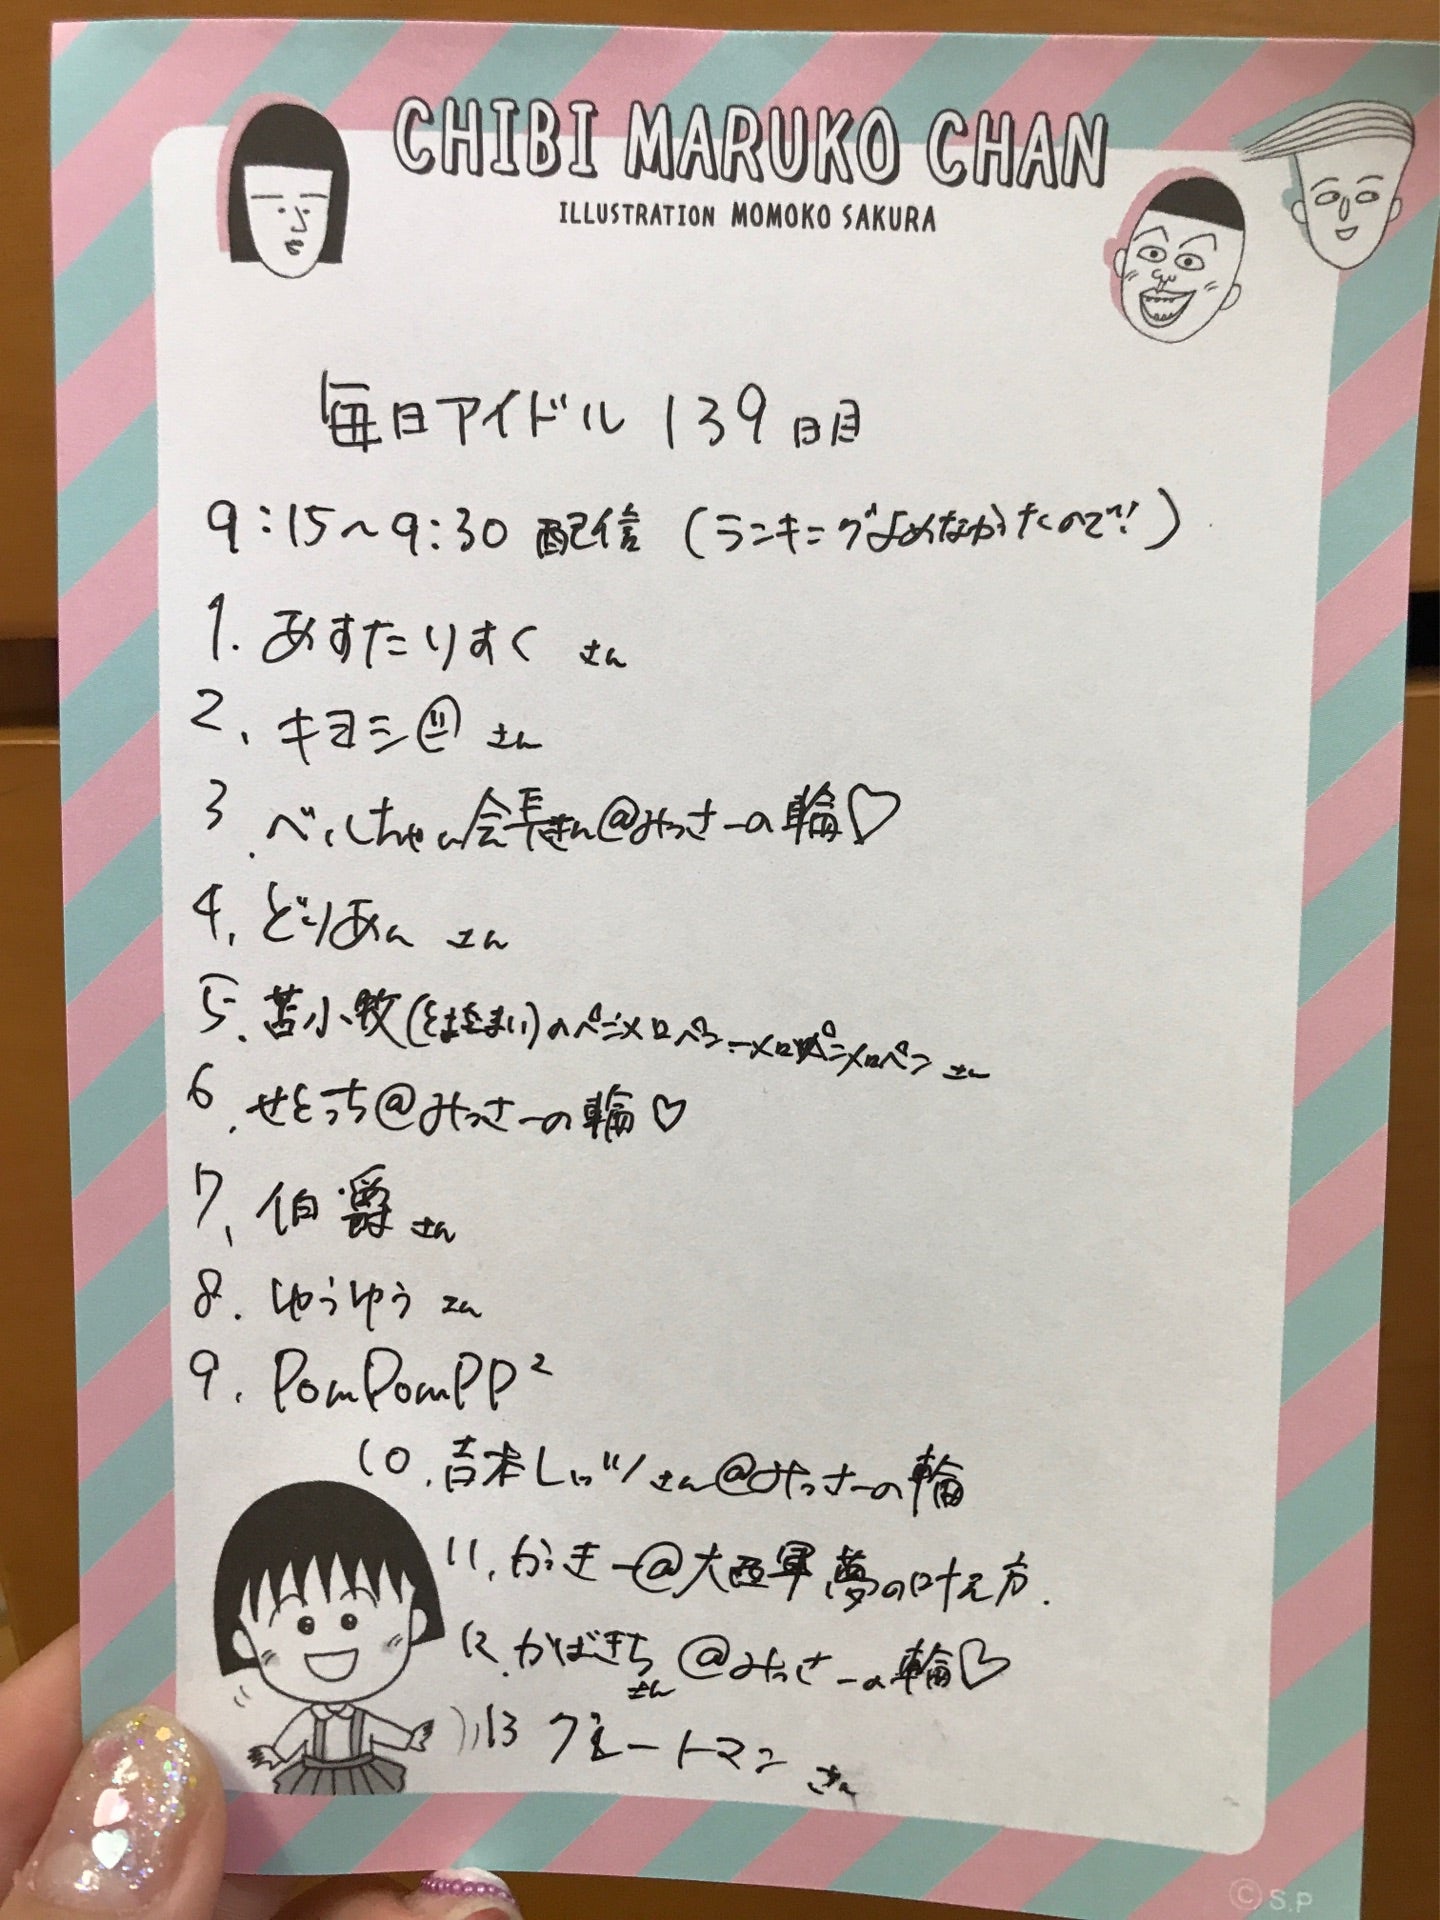 CHIBI MARUKO CHAN
ILLUSTRATION MOMOKO SAKURA
毎日アイドル 139日目
9:15〜9:30 配信 (ランキングよめなかったので!)
1. あすたりすく さん
2. キヨシ さん
3. べルちゃん会長さん@みっさーの輪♡
4. どりあん さん
5. 苫小牧(とまこまい)の さん
6. せとっち@みっさーの輪♡
7. 伯爵 さん
8. ゆうゆう さん
9. PomPomPP²
10. 吉本しっ さん@みっさーの輪
11. がっきー@大西軍 夢の叶え方.
12. かばきち さん @みっさーの輪♡
13 グレートマン さん
© S.P